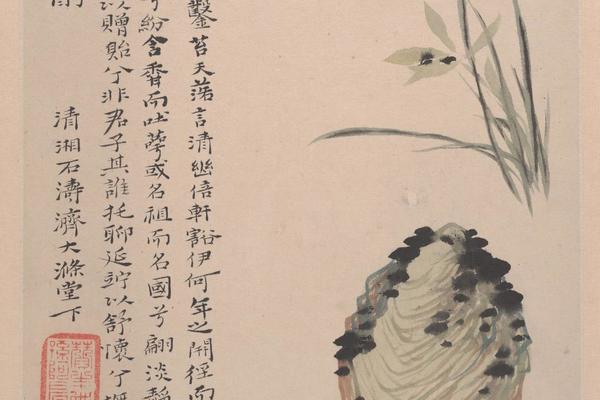 鑿苔天言清幽倍軒豁伊何年之開徑而
紛含香而吐萼或名祖而名國兮翩淡靜
以贈貽兮非君子其誰托聊延竚以舒懷兮
清湘石濤濟大滌堂下